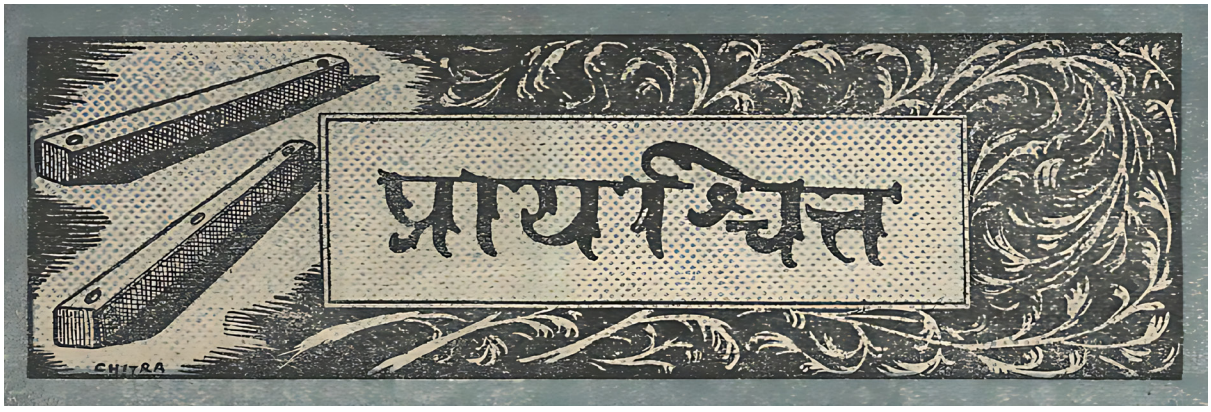 प्रायश्चित्त
CHITRA